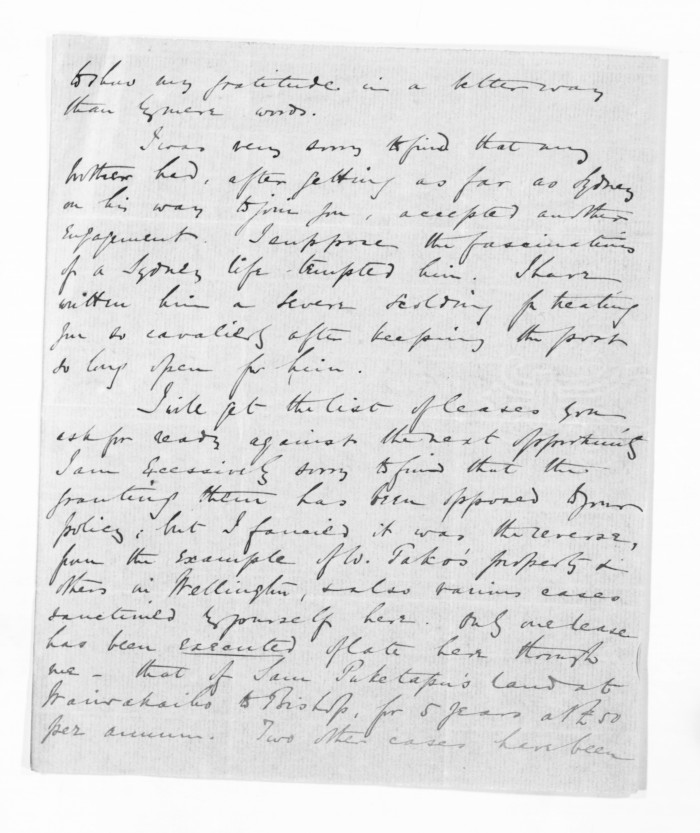 to shew my gratitude in a better way
than by mere words.
I was very sorry to find that my
brother had, after getting as far as Sydney
on his way to join you, accepted another
engagement. I suppose the fascinations
of a Sydney life tempted him. I have
written him a severe scolding for treating
you so cavalierly after keeping the post
so long open for him.
I will get the list of leases you
ask for ready against the next opportunity
I am excessively sorry to find that the
granting them has been opposed to your
policy; but I fancied it was the reverse,
from the example of W. Tako's property &
others in Wellington, & also various cases
sanctioned by yourself here. Only one lease
has been executed of late here through
me - that of Sam Puketapu's land at
Waiwakaiho to Bishop, for 5 years at £50
per annum. Two other cases have been